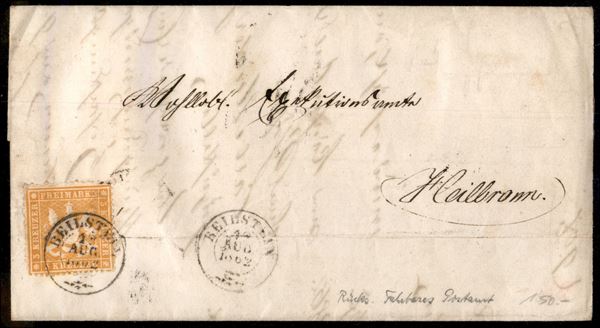 Wohllobl. Exekutionsamte
Heilbronn.
FREIMARKE
3 KREUZER
BEILSTEIN
AUG
1862
BEILSTEIN
AUG
1862
Rücks. Postamt 150.-